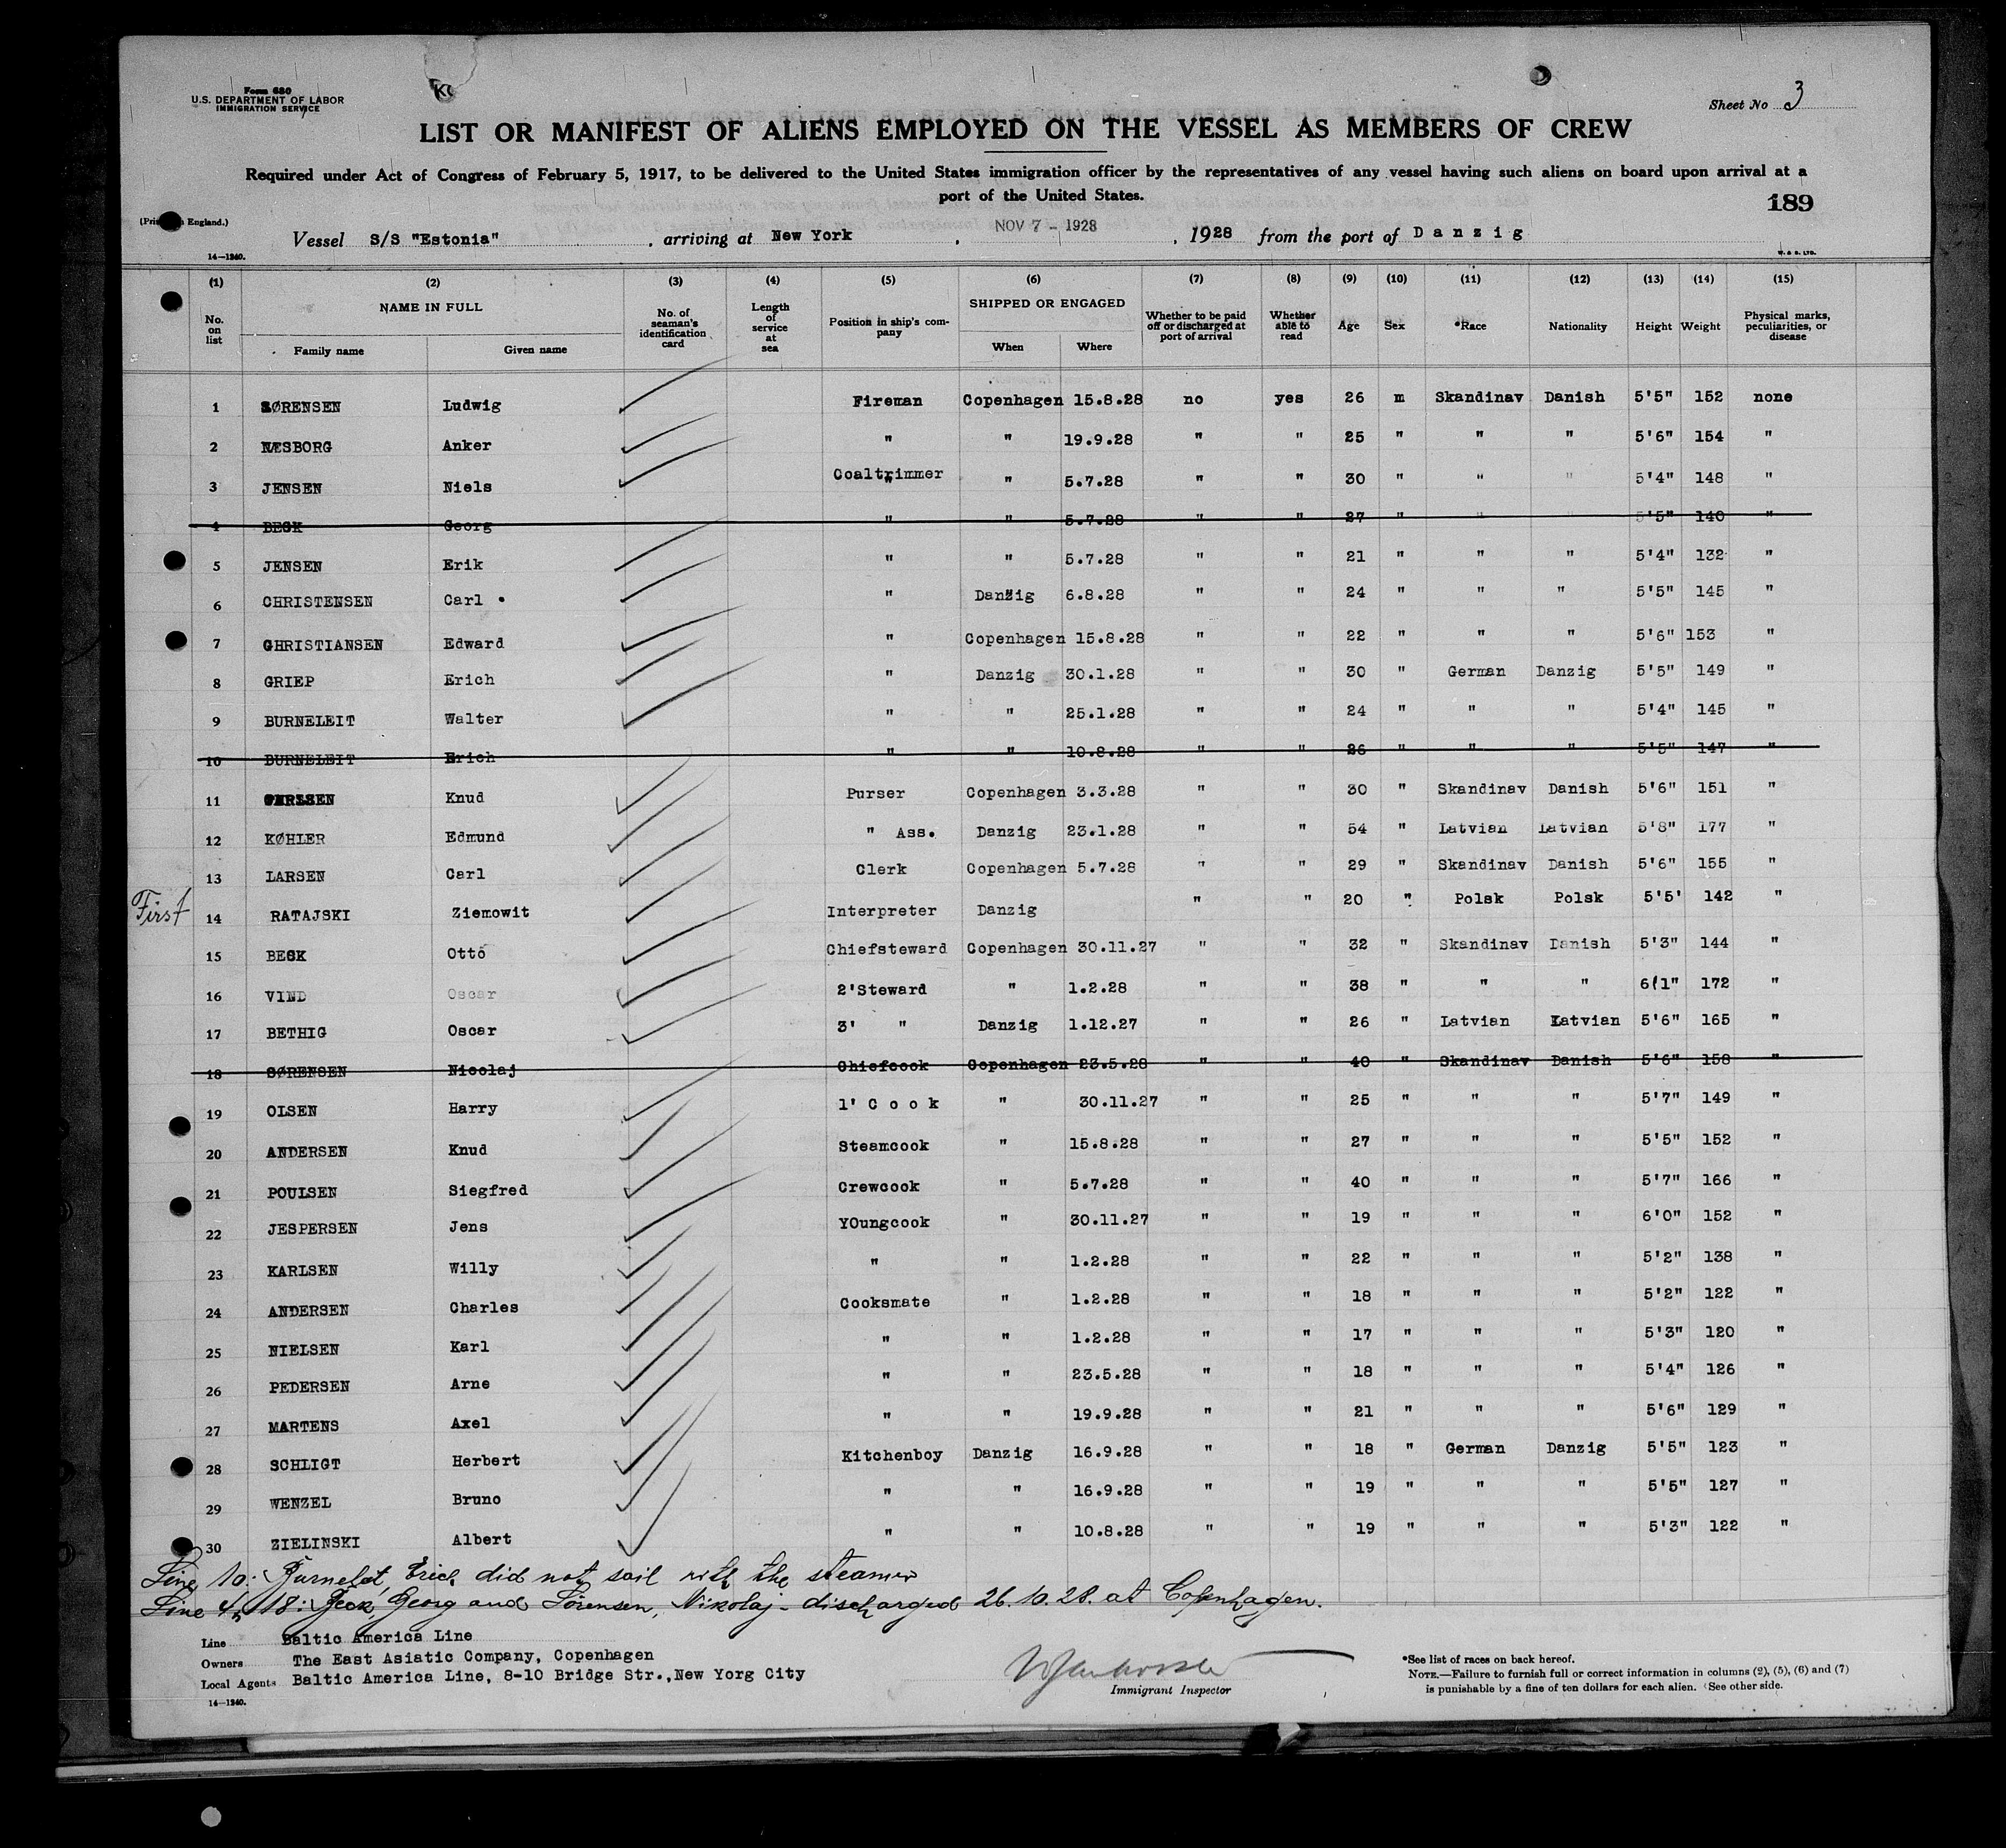 Form 680
U.S. DEPARTMENT OF LABOR
IMMIGRATION SERVICE
Sheet No 3
LIST OR MANIFEST OF ALIENS EMPLOYED ON THE VESSEL AS MEMBERS OF CREW
Required under Act of Congress of February 5, 1917, to be delivered to the United States immigration officer by the representatives of any vessel having such aliens on board upon arrival at a
port of the United States.
189
England.)
Vessel S/S "Estonia" , arriving at New York , NOV 7 - 1928 , 1928 from the port of Danzig
14—1240. W. & S. LTD.
(1) (2) (3) (4) (5) (6) (7) (8) (9) (10) (11) (12) (13) (14) (15)
No. on list NAME IN FULL Family name Given name No. of seaman's identification card Length of service at sea Position in ship's company SHIPPED OR ENGAGED When Where Whether to be paid off or discharged at port of arrival Whether able to read Age Sex *Race Nationality Height Weight Physical marks, peculiarities, or disease
1 SØRENSEN Ludwig Fireman Copenhagen 15.8.28 no yes 26 m Skandinav Danish 5'5" 152 none
2 NÆSBORG Anker " " 19.9.28 " " 25 " " " 5'6" 154 "
3 JENSEN Niels Coaltrimmer " 5.7.28 " " 30 " " " 5'4" 148 "
4 BECK Georg " " 5.7.28 " " 27 " " " 5'5" 140 "
5 JENSEN Erik " " 5.7.28 " " 21 " " " 5'4" 132 "
6 CHRISTENSEN Carl " Danzig 6.8.28 " " 24 " " " 5'5" 145 "
7 CHRISTIANSEN Edward " Copenhagen 15.8.28 " " 22 " " " 5'6" 153 "
8 GRIEP Erich " Danzig 30.1.28 " " 30 " German Danzig 5'5" 149 "
9 BURNELEIT Walter " " 25.1.28 " " 24 " " " 5'4" 145 "
10 BURNELEIT Erich " " 10.8.28 " " 26 " " " 5'5" 147 "
11 Knud Purser Copenhagen 3.3.28 " " 30 " Skandinav Danish 5'6" 151 "
12 KØHLER Edmund " Ass. Danzig 23.1.28 " " 54 " Latvian Latvian 5'8" 177 "
13 LARSEN Carl Clerk Copenhagen 5.7.28 " " 29 " Skandinav Danish 5'6" 155 "
First 14 RATAJSKI Ziemowit Interpreter Danzig " " 20 " Polsk Polsk 5'5' 142 "
15 BECK Otto Chiefsteward Copenhagen 30.11.27 " " 32 " Skandinav Danish 5'3" 144 "
16 VIND Oscar 2'Steward " 1.2.28 " " 38 " " " 6'1" 172 "
17 BETHIG Oscar 3' " Danzig 1.12.27 " " 26 " Latvian Latvian 5'6" 165 "
18 SØRENSEN Nicolaj Chiefcook Copenhagen 23.5.28 " " 40 " Skandinav Danish 5'6" 158 "
19 OLSEN Harry 1' C o o k " 30.11.27 " " 25 " " " 5'7" 149 "
20 ANDERSEN Knud Steamcook " 15.8.28 " " 27 " " " 5'5" 152 "
21 POULSEN Siegfred Crewcook " 5.7.28 " " 40 " " " 5'7" 166 "
22 JESPERSEN Jens YOungcook " 30.11.27 " " 19 " " " 6'0" 152 "
23 KARLSEN Willy " " 1.2.28 " " 22 " " " 5'2" 138 "
24 ANDERSEN Charles Cooksmate " 1.2.28 " " 18 " " " 5'2" 122 "
25 NIELSEN Karl " " 1.2.28 " " 17 " " " 5'3" 120 "
26 PEDERSEN Arne " " 23.5.28 " " 18 " " " 5'4" 126 "
27 MARTENS Axel " " 19.9.28 " " 21 " " " 5'6" 129 "
28 SCHLIGT Herbert Kitchenboy Danzig 16.9.28 " " 18 " German Danzig 5'5" 123 "
29 WENZEL Bruno " " 16.9.28 " " 19 " " " 5'5" 127 "
30 ZIELINSKI Albert " " 10.8.28 " " 19 " " " 5'3" 122 "
Line 10: Burneleit, Erich did not sail with the steamer
Line 4, 18: Beck, Georg and Sörensen, Nikolaj - discharged 26.10.28. at Copenhagen.
Line Baltic America Line
Owners The East Asiatic Company, Copenhagen
Local Agents Baltic America Line, 8-10 Bridge Str.,New Yorg City
14—1240.
Immigrant Inspector
*See list of races on back hereof.
NOTE.—Failure to furnish full or correct information in columns (2), (5), (6) and (7)
is punishable by a fine of ten dollars for each alien. (See other side.